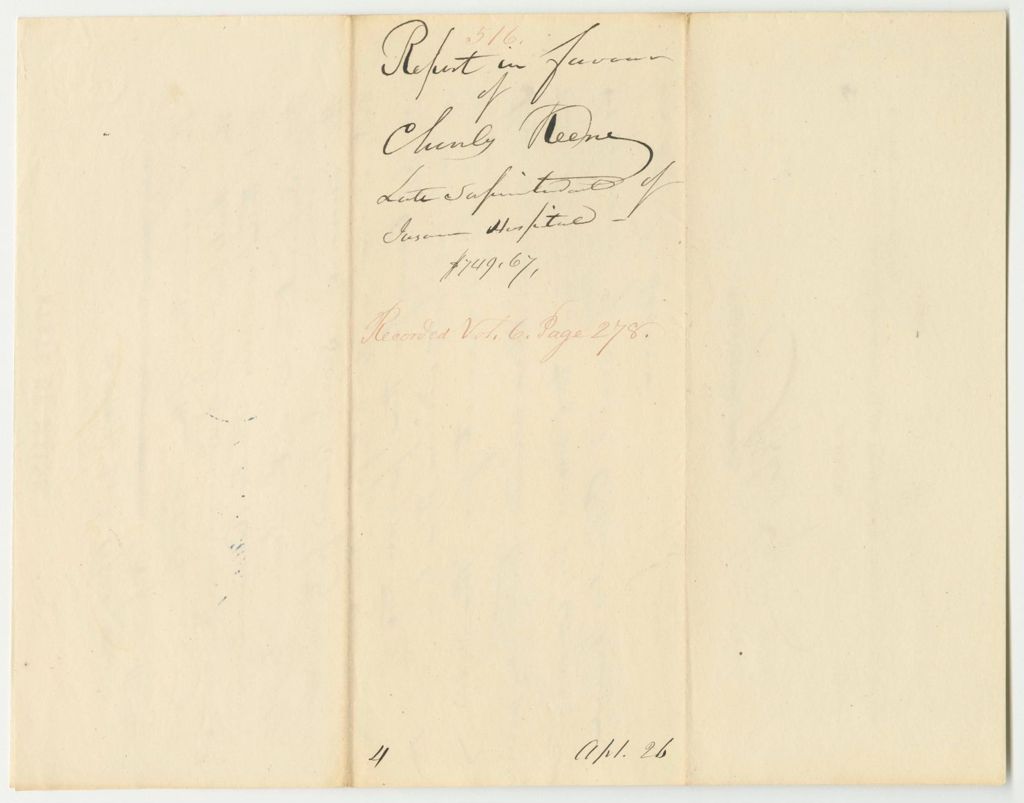 516.
Report in favour
of
Charles Keene
Late Superintendent of
Insane Hospital —
$749.67,
Recorded Vol. 6. Page 278.
4 Apl. 26